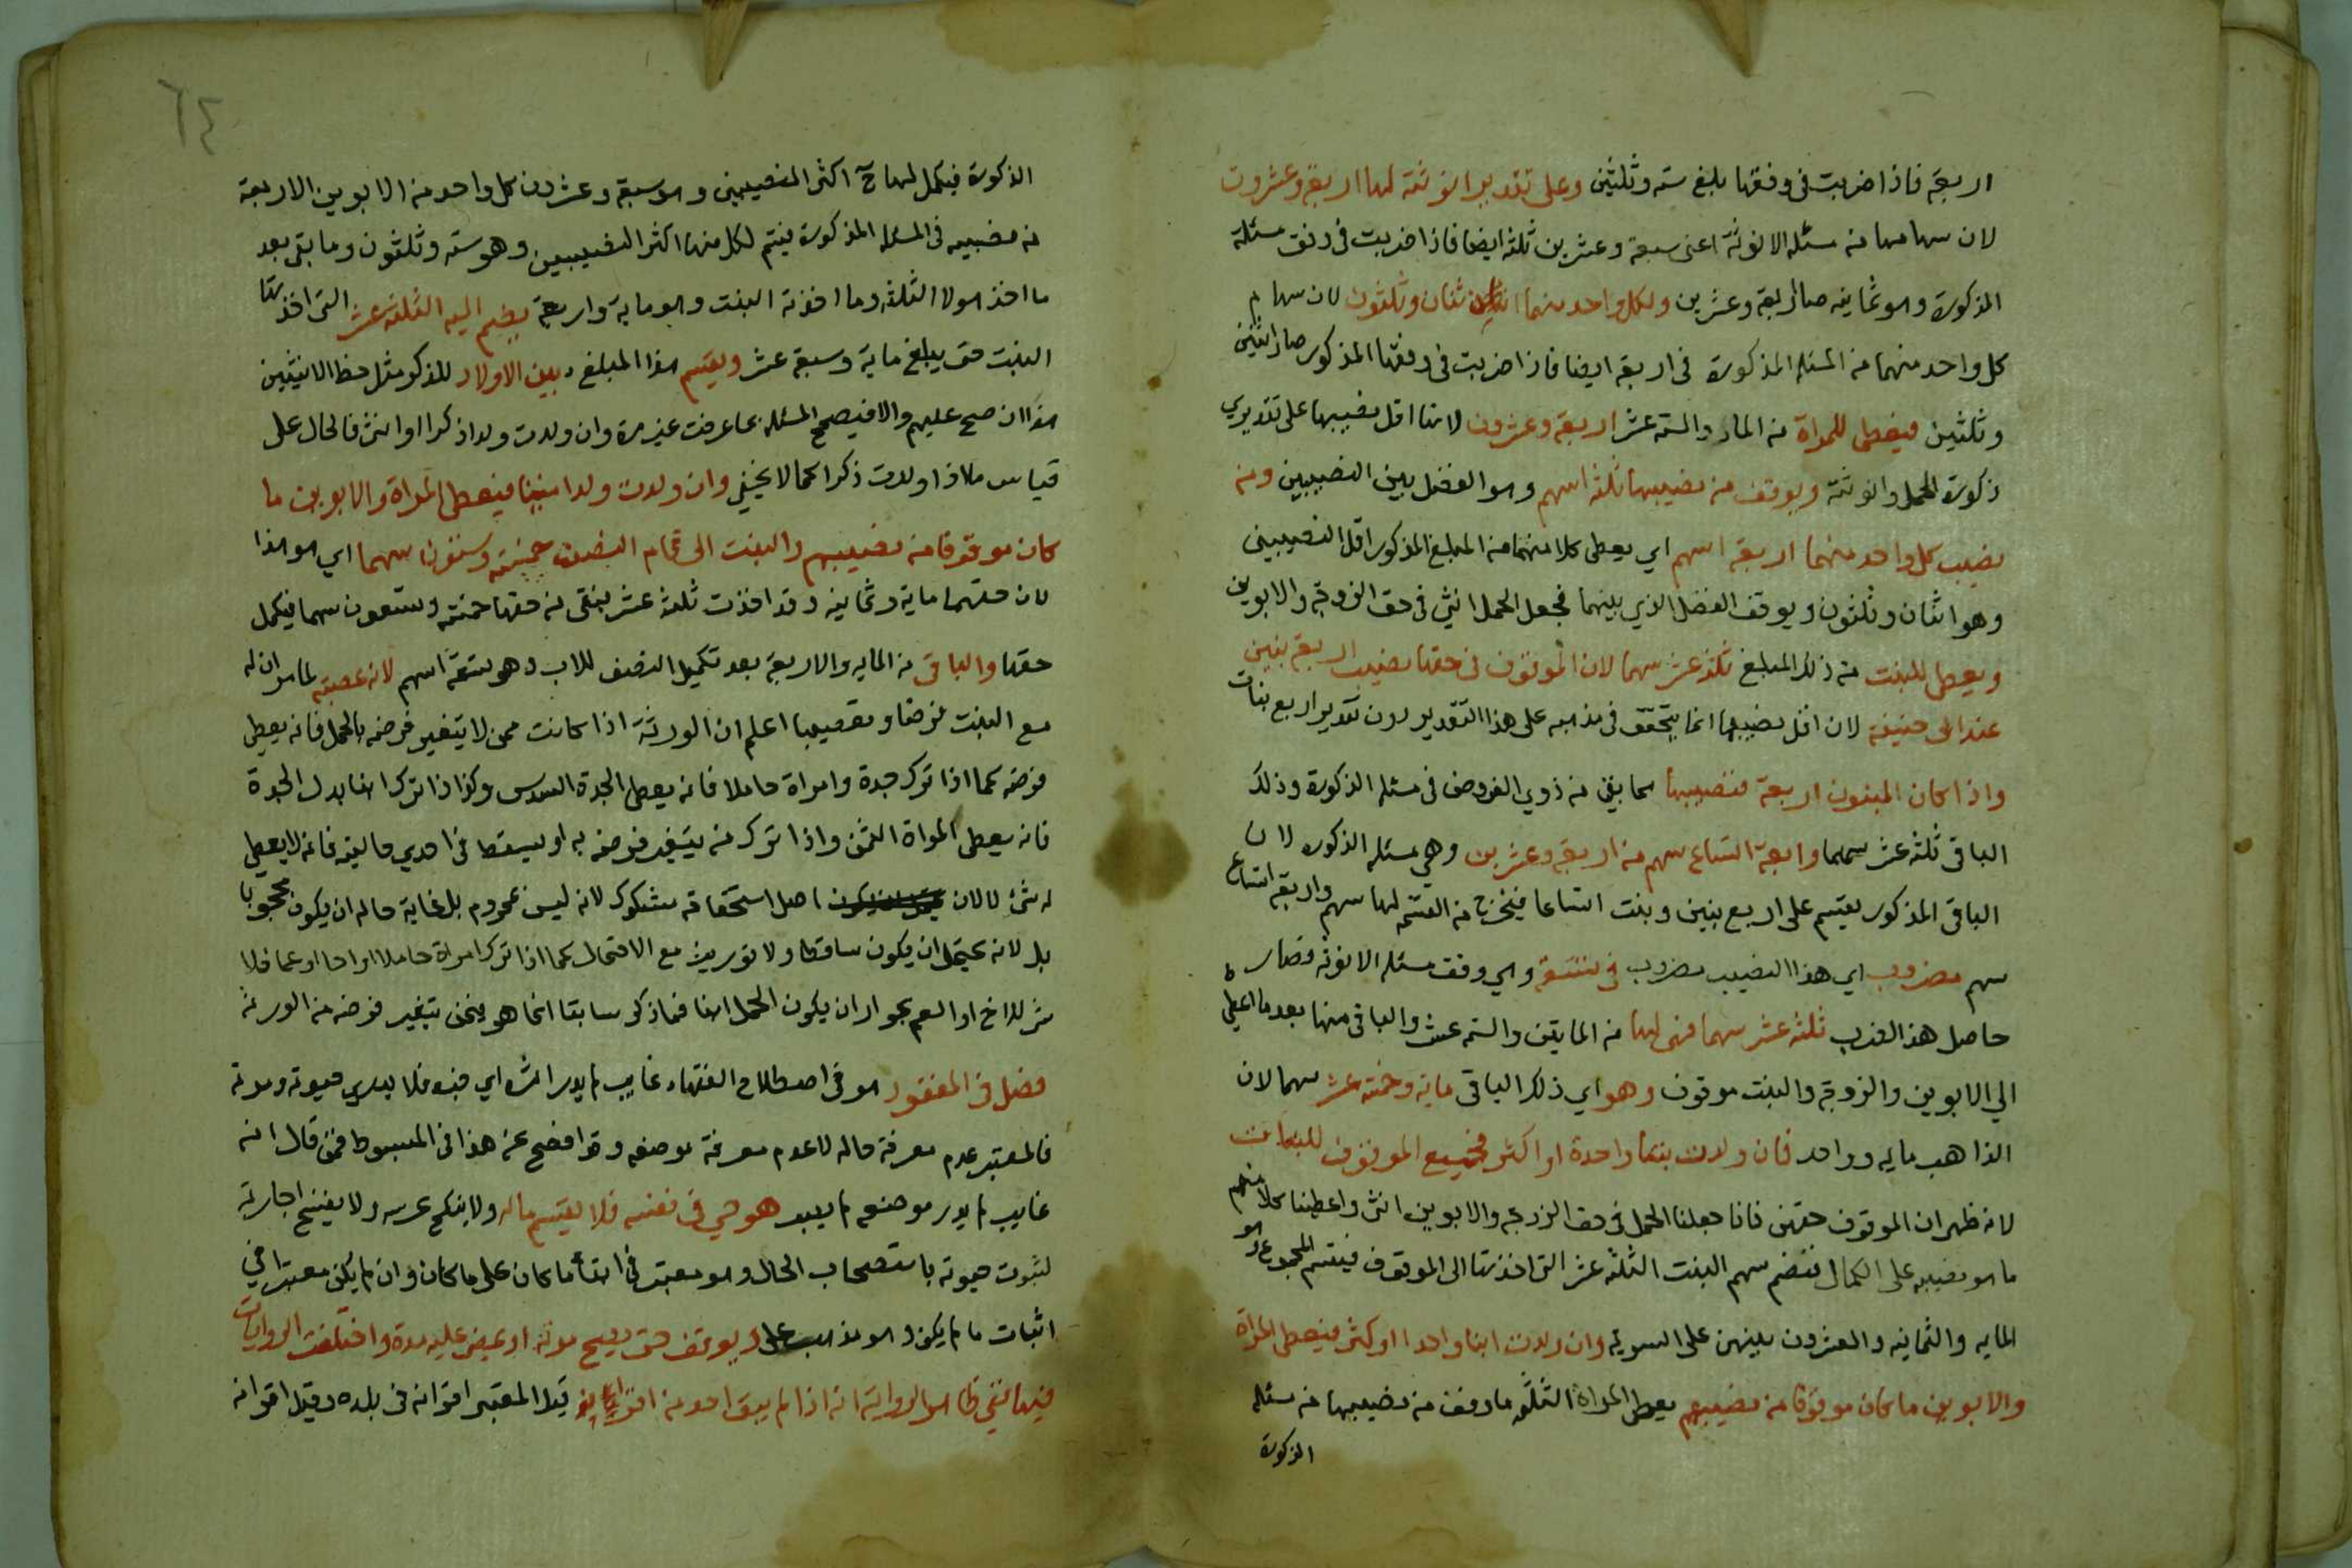 اربعة فاذا ضربت فى وفقها بلغ ستة وثلثين وعلى تقدير انوثته لها اربعة وعشرون
لان سهامها من مسئلة الانوثة اعنى سبعة وعشرين ثلثة ايضا فاذا ضربت فى وفق مسئلة
الذكورة وهو ثمانية صار اربعة وعشرين ولكل واحد منهما اثنان وثلثون لان سهام
كل واحد منهما من المسئلة المذكورة فى اربعة ايضا فاذا ضربت فى وفقها المذكور صار اثنين
وثلثين فيعطى للمراة من الماد والستة عشر اربعة وعشرون لانها اقل نصيبيها على تقديري
ذكورة الحمل وانوثته ويوقف من نصيبها ثلثة اسهم وهو الفضل بين النصيبين ومن
نصيب كل واحد منهما اربعة اسهم اي يعطى كلا منهما من المبلغ المذكور اقل النصيبين
وهو اثنان وثلثون ويوقف الفضل الذي بينهما فجعل الحمل انثى فى حق الزوجة والابوين
ويعطى للبنت من ذلك المبلغ ثلثة عشر سهما لان الموقوف فى حقها نصيب اربعة بنين
عند ابى حنيفة لان اقل نصيبها انما يتحقق فى مذهبه على هذا التقدير دون تقدير اربع بنات
واذا كان البنون اربعة فنصيبها مما بقى من ذوي الفروض فى مسئلة الذكورة وذلك
الباقى ثلثة عشر سهما واربعة اتساع سهم من اربعة وعشرين وهى مسئلة الذكورة لان
الباقى المذكور يقسم على اربع بنين وبنت اتساعا فيخرج من القسمة لها سهم واربعة اتساع
سهم مضروب اي هذا النصيب مضروب فى تسعة وهي وفق مسئلة الانوثة فصار
حاصل هذا الضرب ثلثة عشر سهما فهى لها من المايتين والستة عشر والباقى منها بعد ما اعطى
الى الابوين والزوجة والبنت موقوف وهو اي ذلك الباقى ماية وخمسة عشر سهما لان
الذاهب ماية وواحد فان ولدت بنتا واحدة او اكثر فجميع الموقوف للبنات
لانه ظهر ان الموقوف حقهن فانا جعلنا الحمل فى حق الزوجة والابوين انثى واعطينا كلا منهم
ما هو نصيبه على الكمال فنضم سهم البنت الثلثة عشر التى اخذتها الى الموقوف فيقسم المجموع وهو
المايه والثمانية والعشرون بينهن على السوية وان ولدت ابنا واحدا او اكثر فيعطى المراة
والابوين ما كان موقوفا من نصيبهم يعطى المراة الثلثة ما وقف من نصيبها من مسئلة
الذكورة
٦٤
الذكورة فيكمل لها ح اكثر النصيبين وهو سبعة وعشرون كل واحد من الابوين الاربعة
من نصيبه فى المسئلة المذكورة فيتم لكل منهما اكثر النصيبين وهو ستة وثلثون وما بقى بعد
ما اخذ هولا الثلثة وما اخذته البنت وهو ماية واربعة يضم اليه الثلثة عشر التى اخذتها
البنت حتى يبلغ ماية وسبعة عشر ويقسم هذا المبلغ بين الاولاد للذكر مثل حظ الانثيين
هذا ان صح عليهم والا فيصحح المسئلة بما عرفت غير مرة وان ولدت ولدا ذكرا او انثى فالحال على
قياس ما اذا ولدت ذكرا كما لا يخفى وان ولدت ولدا ميتا فيعطى المراة والابوين ما
كان موقوفا من نصيبهم والبنت الى تمام النصف خمسة وتسعون سهما اي هو هذا
لان حقها ماية وثمانية وقد اخذت ثلثة عشر فبقى من حقها خمسة وتسعون سهما فيكمل
حقها والباقى من المايه والاربعة بعد تكميل النصف للاب وهو تسعة اسهم لانه عصبته لما مر ان له
مع البنت فرضا وتعصيبا اعلم ان الورثة اذا كانت ممن لا يتغير فرضه بالحمل فانه يعطى
فرضه كما اذا ترك جدة وامراة حاملا فانه يعطى الجدة السدس وكذا اذا ترك ابنا بدل الجدة
فانه يعطى المراة الثمن واذا ترك من يتغير فرضه به او يسقط فى احدي حاليه فانه لا يعطى
له شئ لا لان اصل استحقاقه مشكوك لانه ليس بمحروم بل غاية حاله ان يكون محجوبا
بل لانه يحتمل ان يكون ساقطا ولا توريث مع الاحتمال كما اذا ترك امراة حاملا او اخا او عما فلا
شئ للاخ او العم بجواز ان يكون الحمل ابنا فما ذكر سابقا انما هو فيمن يتغير فرضه من الورثة
فصل فى المفقود هو فى اصطلاح الفقهاء غايب لم يدر اثره اي خبره فلا يدري حيوته وموته
فالمعتبر عدم معرفة حاله لا عدم معرفة موضعه وقد افصح عن هذا فى المبسوط فمن قال انه
غايب لم يدر موضعه لم يبعد هو حي فى نفسه فلا يقسم ماله ولا ينكح عرسه ولا يفسخ اجارته
لثبوت حيوته باستصحاب الحال وهو معتبر فى ابقاء ما كان على ما كان وان لم يكن معتبرا فى
اثبات ما لم يكن وهو مذهب على ويوقف حتى يصح موته او يمضى عليه مدة واختلفت الروايات
فيها ففى ظاهر الرواية انه اذا لم يبق احد من اقرانه قيل المعتبر اقرانه فى بلده وقيل اقرانه